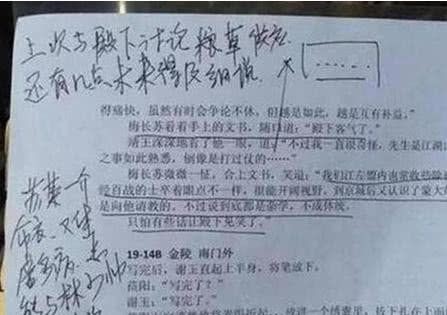 上次与殿下讨论粮草供应
还有几点未来得及细说
得痛快，虽然有时会争论不休，但越是如此，越是互有补益，"
梅长苏看着手上的文书，随口道："殿下客气了。"
靖王深深地看了他一眼，道："不过我一直很奇怪，先生是江湖
之事如此熟悉，倒像是打过仗的……"
梅长苏微微一怔，合上文书，笑道："我们江左盟内也常收些
经百战的士卒着眼点不一样，很能开阔视野，到京城后又认识了蒙大
是向他请教的，不过说到底都是杂学，不成体统，
只怕有些话让殿下见笑了。"
苏某一介
布衣，又
19-14B 金陵 南门外
写完后，谢玉直起上半身，将笔放下。
莅阳："写完了？"
谢玉："写完了。"